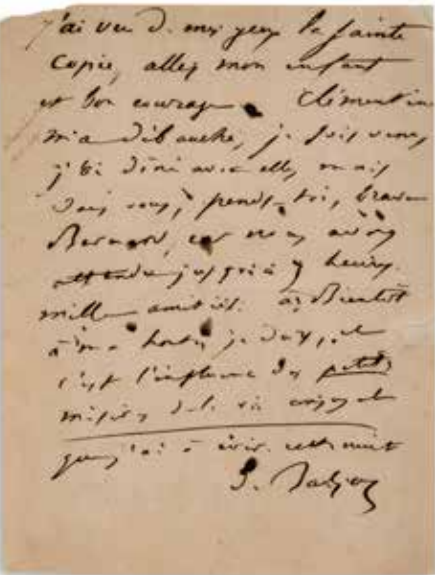 J'ai vu d. mes yeux la Sainte
Copie, allez mon enfant
et bon courage. Clémentine
m'a débauché, je suis venu
j'ai dîné avec elle, mais
sans vous, pends-toi, brave
Bernard, car nous avons
attendu jusqu'à 7 heures.
mille amitiés. à Bientôt
à ma honte je dors, et
c'est l'influence des petites
misères de la vie conjugale
que j'ai à écrire cette nuit